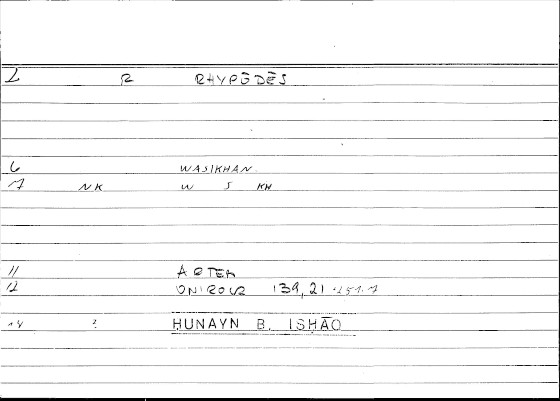 1 R RHYPŌDĒS
6 WASIKHAN.
7 NK W S KH
11 ARTEM
12 ONIROCR 139,21
14 ? HUNAYN B. ISHĀQ